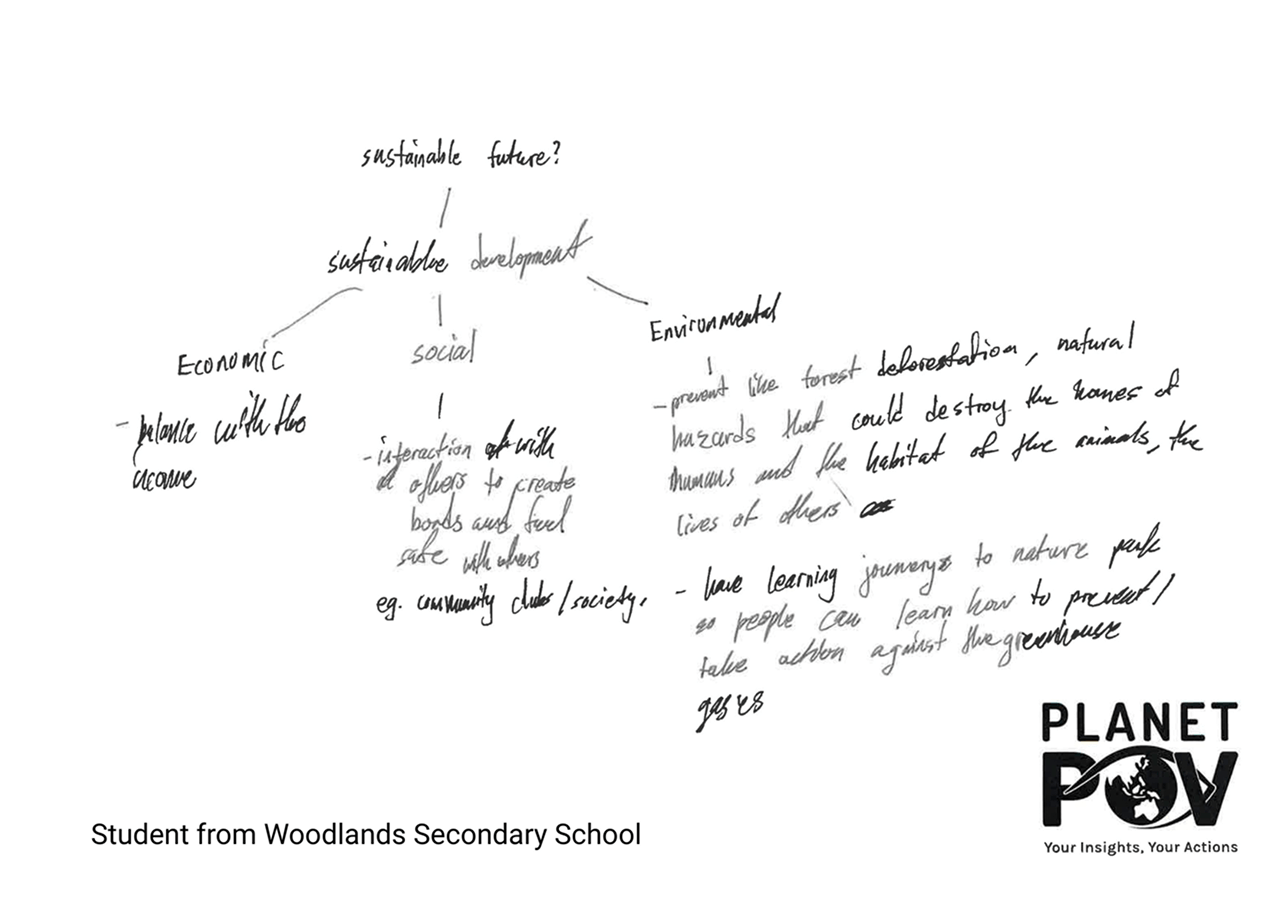 sustainable future?
sustainable development
Economic
- balance with the
income
social
- interaction with
others to create
bonds and feel
safe with others
eg. community clubs/society.
Environmental
- prevent like forest deforestation, natural
hazards that could destroy the homes of
humans and the habitat of the animals, the
lives of others
- have learning journeys to nature park
so people can learn how to prevent/
take action against the greenhouse
gases
Student from Woodlands Secondary School
PLANET
POV
Your Insights, Your Actions